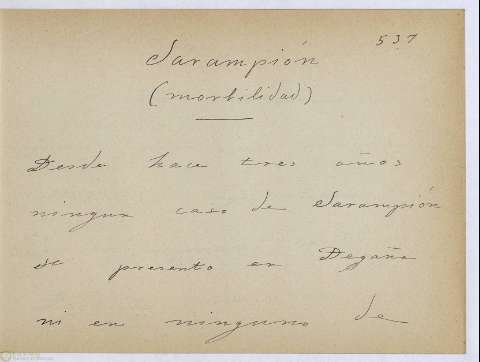 537
Sarampión
(morbilidad)
Desde hace tres años
ningun caso de Sarampión
se presento en Degaña
ni en ninguno de